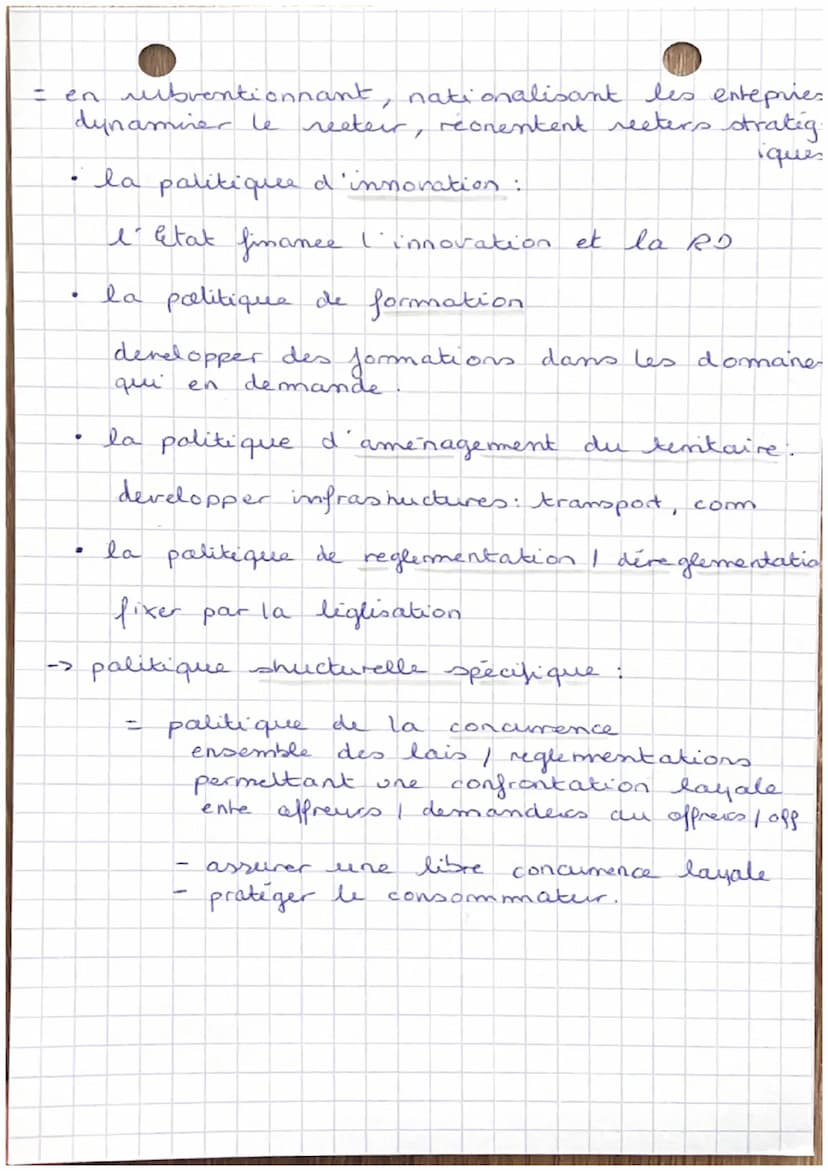 = en subventionnant, nationalisant les entepries
dynamiser le secteur, réorientent secters stratég
iques
• la politique d'innovation :
l'Etat finance l'innovation et la RD
• la politique de formation
developper des formations dans les domaine
qui en demande.
• la politique d'aménagement du territoire :
developper infrastructures : transport, com
• la politique de reglementation / déreglementatio
fixer par la législation
-> politique structurelle spécifique :
= politique de la concurrence
ensemble des lois / reglementations
permettant une confrontation loyale
entre offreurs / demandeurs ou offreurs / off
- assurer une libre concurrence loyale
- protéger le consommateur.